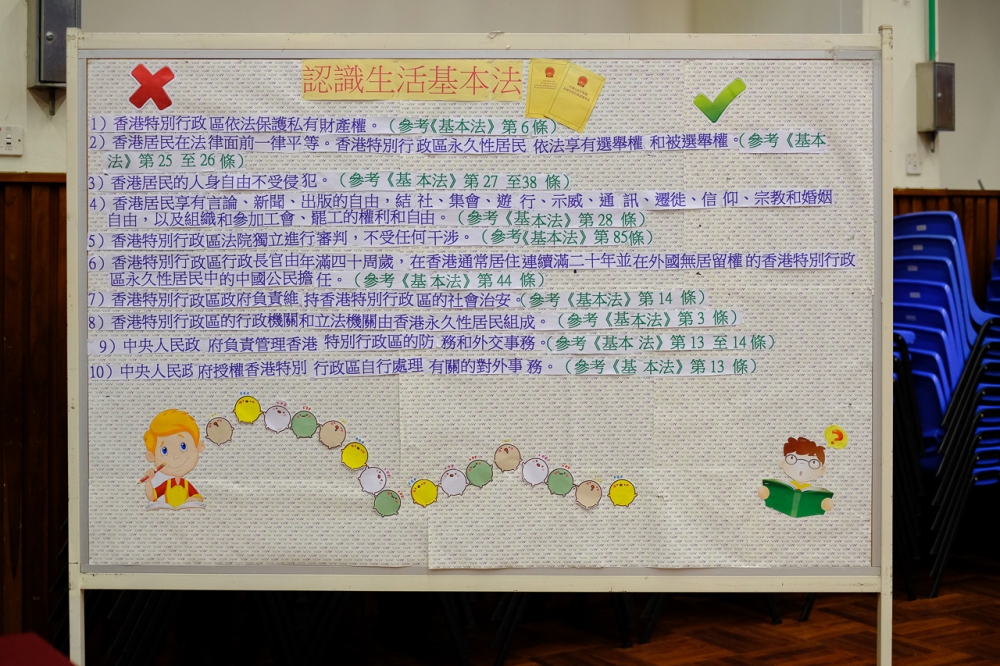 認識生活基本法
1) 香港特別行政區依法保護私有財產權。(參考《基本法》第6條)
2) 香港居民在法律面前一律平等。香港特別行政區永久性居民 依法享有選舉權 和被選舉權。(參考《基本
法》第25 至26條)
3) 香港居民的人身自由不受侵犯。(參考《基本法》第27 至38條)
4) 香港居民享有言論、新聞、出版的自由，結社、集會、遊行、示威、通訊、遷徙、信仰、宗教和婚姻
自由，以及組織和參加工會、罷工的權利和自由。(參考《基本法》第28條)
5) 香港特別行政區法院獨立進行審判，不受任何干涉。(參考《基本法》第85條)
6) 香港特別行政區行政長官由年滿四十周歲，在香港通常居住連續滿二十年並在外國無居留權的香港特別行政
區永久性居民中的中國公民擔任。(參考《基本法》第44條)
7) 香港特別行政區政府負責維持香港特別行政區的社會治安。(參考《基本法》第14條)
8) 香港特別行政區的行政機關和立法機關由香港永久性居民組成。(參考《基本法》第3條)
9) 中央人民政府負責管理香港特別行政區的防務和外交事務。(參考《基本法》第13 至14條)
10) 中央人民政府授權香港特別行政區自行處理有關的對外事務。(參考《基本法》第13條)
?